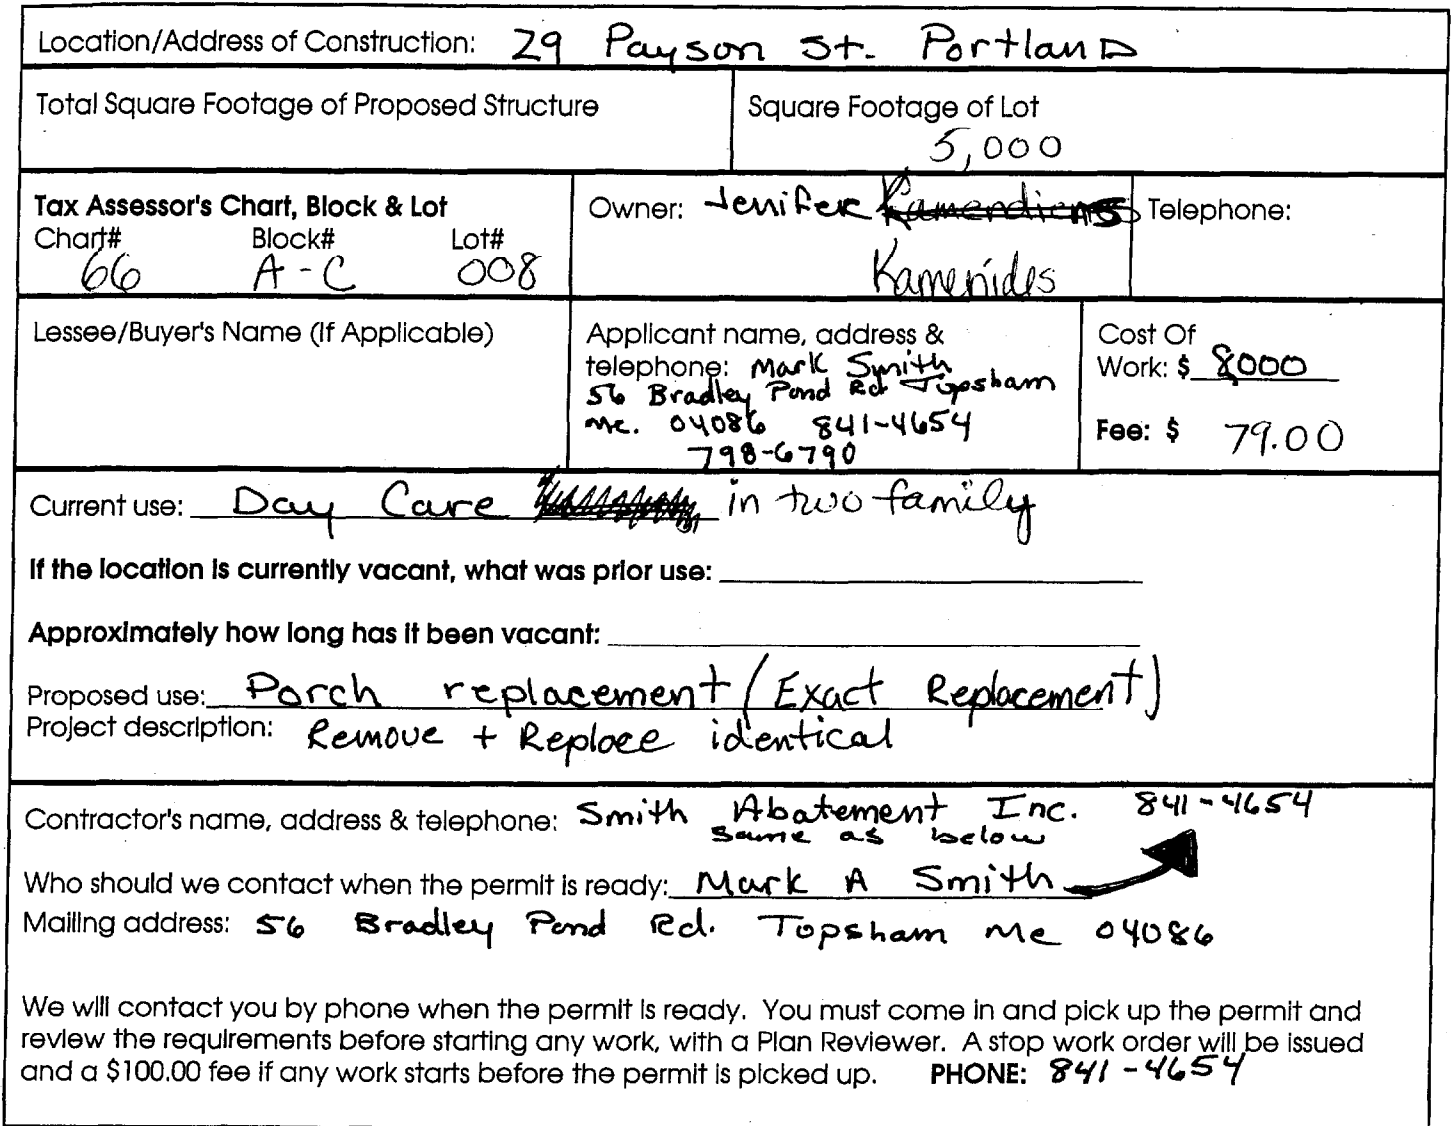 Location/Address of Construction: 29 Payson St. Portland
Total Square Footage of Proposed Structure
Square Footage of Lot
5,000
Tax Assessor's Chart, Block & Lot
Chart# Block# Lot#
66 A-C 008
Owner: Jenifer
Kamenides
Telephone:
Lessee/Buyer's Name (If Applicable)
Applicant name, address &
telephone: Mark Smith
56 Bradley Pond Rd Topsham
Me. 04086 841-4654
798-6790
Cost Of
Work: $ 8,000
Fee: $ 79.00
Current use: Day Care in two family
If the location is currently vacant, what was prior use:
Approximately how long has it been vacant:
Proposed use: Porch replacement (Exact Replacement)
Project description: Remove + Replace identical
Contractor's name, address & telephone: Smith Abatement Inc. 841-4654
same as below
Who should we contact when the permit is ready: Mark A Smith
Mailing address: 56 Bradley Pond Rd. Topsham Me 04086
We will contact you by phone when the permit is ready. You must come in and pick up the permit and
review the requirements before starting any work, with a Plan Reviewer. A stop work order will be issued
and a $100.00 fee if any work starts before the permit is picked up. PHONE: 841-4654